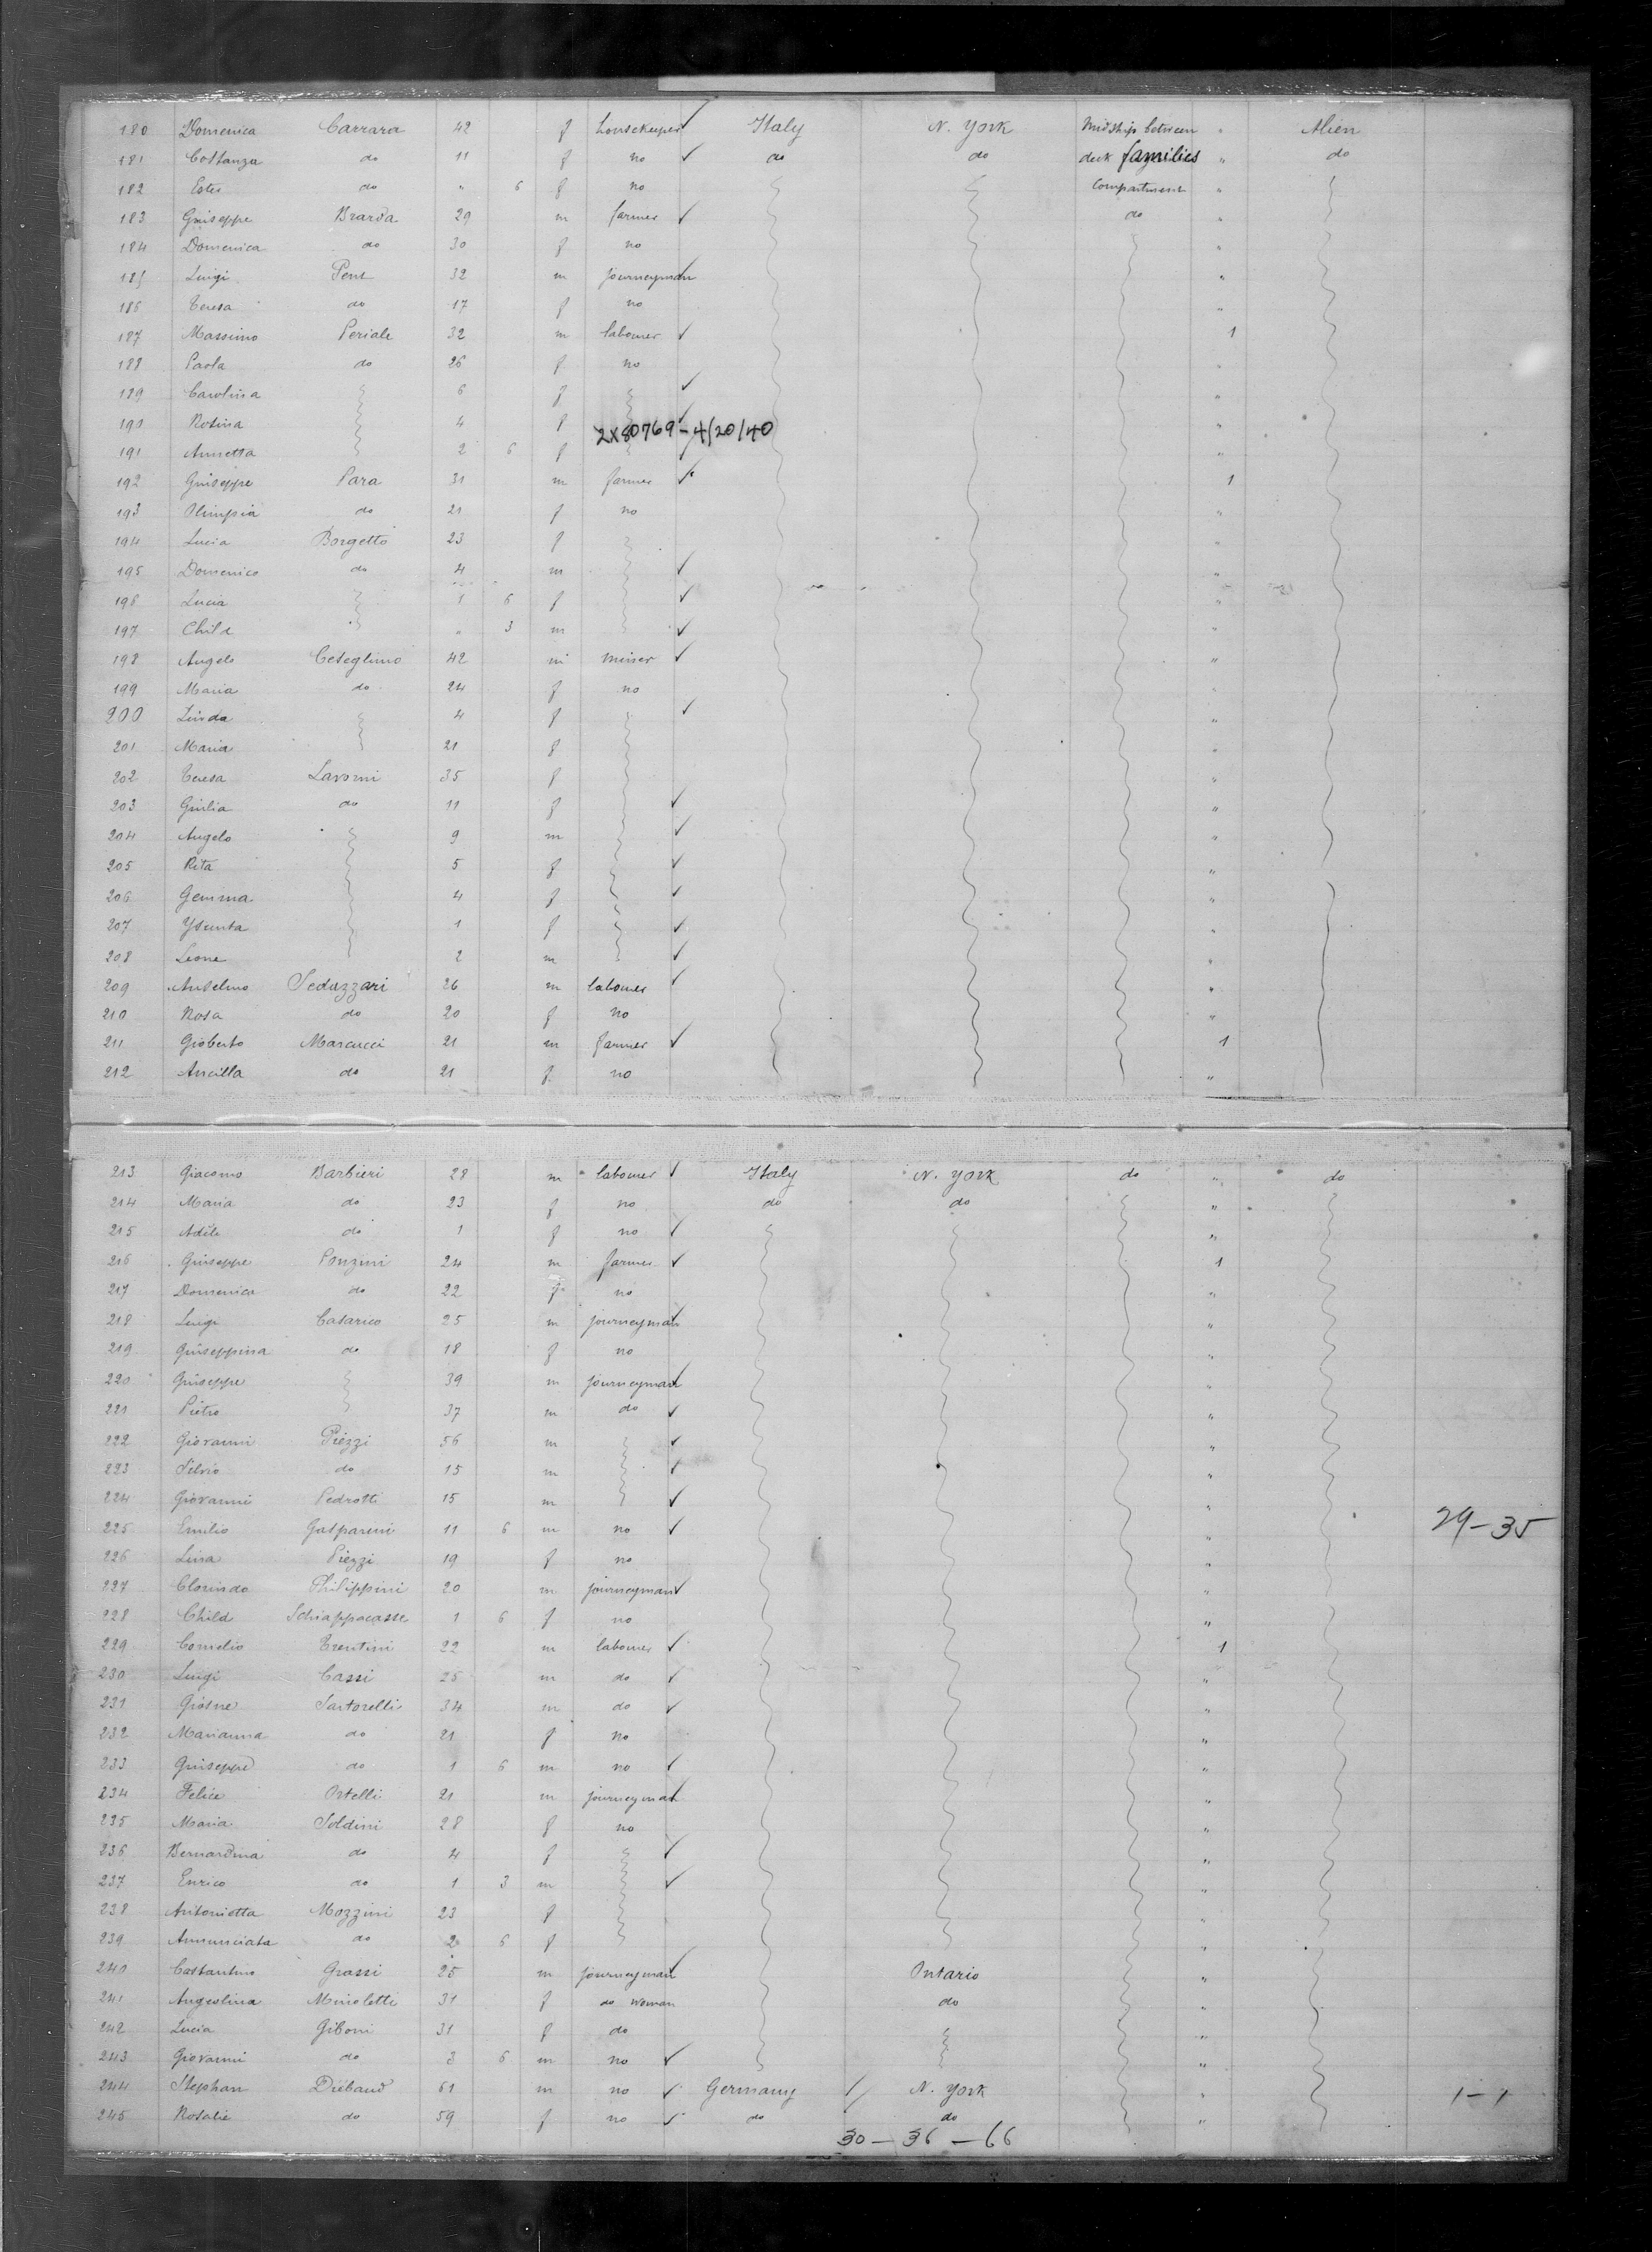 180 Domenica Carrara 42 f housekeeper ✓ Italy N. York Midship between " Alien
181 Costanza do 11 f no ✓ do do deck families " do
182 Ester do " 6 f no compartment "
183 Guiseppe Brarda 29 m farmer ✓ do "
184 Domenica do 30 f no "
185 Luigi Pent 32 m journeyman ✓ "
186 Teresa do 17 f no "
187 Massimo Periale 32 m labourer ✓ 1
188 Paola do 26 f no "
189 Carolina 6 f ✓ "
190 Rosina 4 f ✓ "
2X80769-4/20/40
191 Annetta 2 6 f ✓ "
192 Guiseppe Para 31 m farmer ✓ 1
193 Olimpia do 21 f no "
194 Lucia Borgetto 23 f "
195 Domenico do 4 m ✓ "
196 Lucia 1 6 f ✓ "
197 Child " 3 m ✓ "
198 Angelo 42 m miner ✓ "
199 Maria do 24 f no "
200 Linda 4 f ✓ "
201 Maria 21 f "
202 Teresa Lavorni 35 f "
203 Giulia do 11 f ✓ "
204 Angelo 9 m ✓ "
205 Rita 5 f ✓ "
206 Gemma 4 f ✓ "
207 Ysunta 1 f ✓ "
208 Leone 2 m ✓ "
209 Anselmo Seduzzari 26 m labourer ✓ "
210 Rosa do 20 f no "
211 Gioberto Marcucci 21 m farmer ✓ 1
212 Ancilla do 21 f no "
213 Giacomo Barbieri 28 m labourer ✓ Italy N. York do " do
214 Maria do 23 f no do do "
215 Adele do 1 f no ✓ "
216 Guiseppe Ponzini 24 m farmer ✓ 1
217 Domenica do 22 f no "
218 Luigi Casarico 25 m journeyman ✓ "
219 Guiseppina do 18 f no "
220 Guiseppe 39 m journeyman ✓ "
221 Pietro 37 m do ✓ "
222 Giovanni Piezzi 56 m ✓ "
223 Silvio do 15 m ✓ "
224 Giovanni Pedrotti 15 m ✓ "
225 Emilio Gasparini 11 6 m no ✓ " 29-35
226 Lina Piezzi 19 f no "
227 Clorindo Philippini 20 m journeyman ✓ "
228 Child Schiappacasse 1 6 f no "
229 Cornelio Trentini 22 m labourer ✓ 1
230 Luigi Cassi 25 m do ✓ "
231 Giosue Sartorelli 34 m do ✓ "
232 Marianna do 21 f no "
233 Guiseppe do 1 6 m no ✓ "
234 Felice Ortelli 21 m journeyman ✓ "
235 Maria Soldini 28 f no "
236 Bernardina do 4 f ✓ "
237 Enrico do 1 3 m ✓ "
238 Antonietta Mozzini 23 f "
239 Annunciata do 2 6 f "
240 Costantino Grassi 25 m journeyman ✓ Ontario "
241 Angiolina Minoletti 31 f do woman do "
242 Lucia Giboni 31 f do "
243 Giovanni do 3 6 m no ✓ "
244 Stephan Diebaud 61 m no ✓ Germany // N. York " 1-1
245 Rosalie do 59 f no ✓ do do "
30-36-66